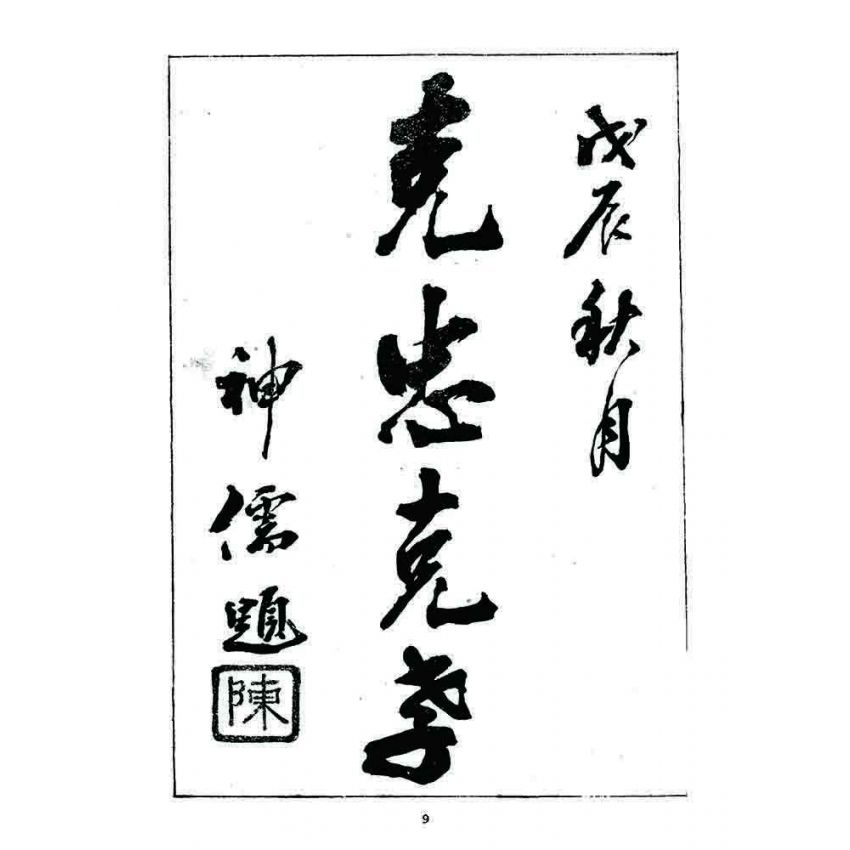 戊辰秋月
克忠克孝
神儒題
陳
9